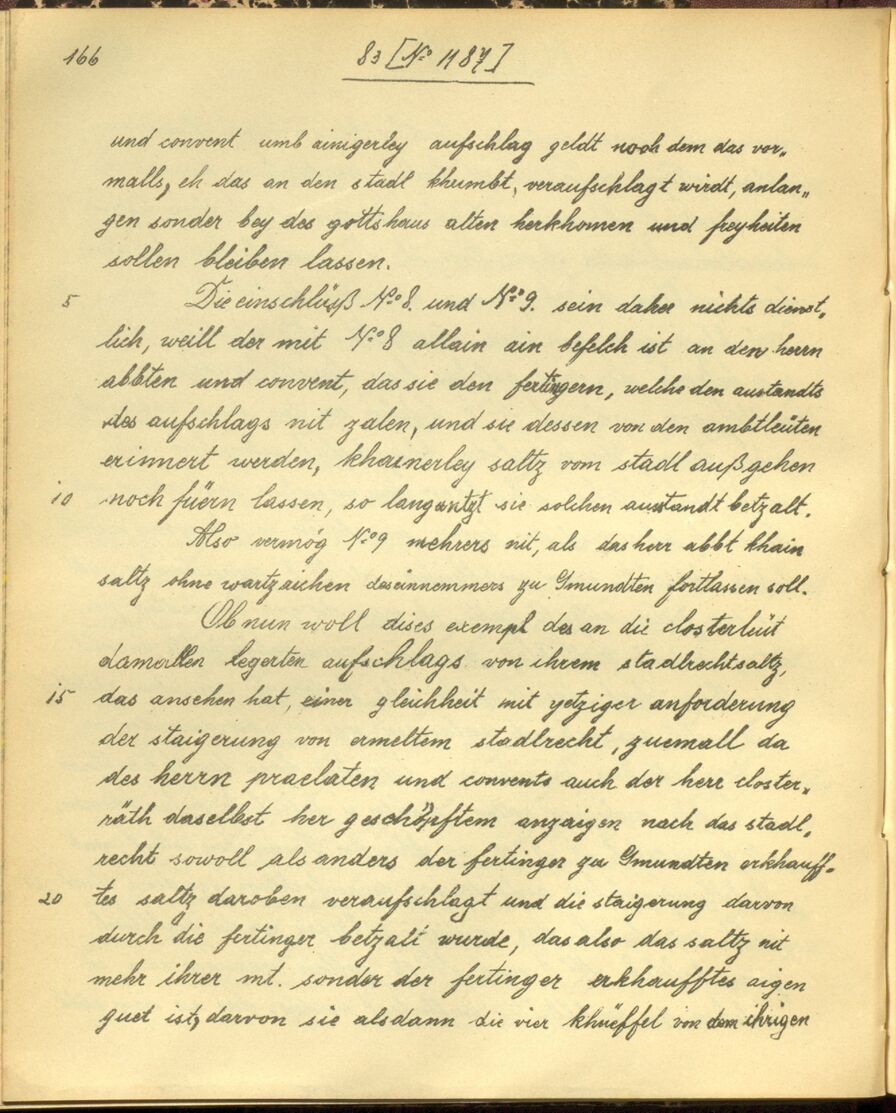 166
83 [No 1187]
und convent umb ainigerley aufschlag geldt noch dem das vor„
malls, eh das an den stadl khumbt, veraufschlagt wirdt, anlan„
gen sonder bey des gottshaus alten herkhomen und freyheiten
sollen bleiben lassen.
5 Die einschlüß No 8. und No 9. sein daher nichts dienst„
lich, weill der mit No 8 allain ain befelch ist an den herrn
abbten und convent, das sie den fertingern, welche den austandts
des aufschlags nit zalen, und sie dessen von den ambtleüten
erinnert werden, khainerley saltz vom stadl außgehen
10 noch füern lassen, so lang sie solchen ausstandt betzalt.
Also vermög No 9 mehrers nit, als das herr abbt khain
saltz ohne wartzaichen des einnemmers zu Gmundten fortlassen soll.
Ob nun woll dises exempl des an die closterleüt
damallen legerten aufschlags von ihrem stadlrechtsaltz,
15 das ansehen hat, einer gleichheit mit yetziger anforderung
der staigerung von ermeltem stadlrecht, zuemall da
des herrn praelaten und convents auch der herr closter„
räth daselbst her geschöpftem anzaigen nach das stadl„
recht sowoll als anders der fertinger zu Gmundten erkhauff„
20 tes saltz daroben veraufschlagt und die staigerung darvon
durch die fertinger betzalt wurde, das also das saltz nit
mehr ihrer mt. sonder der fertinger erkhaufftes aigen
guet ist, darvon sie alsdann die vier khüeffel von dem ihrigen